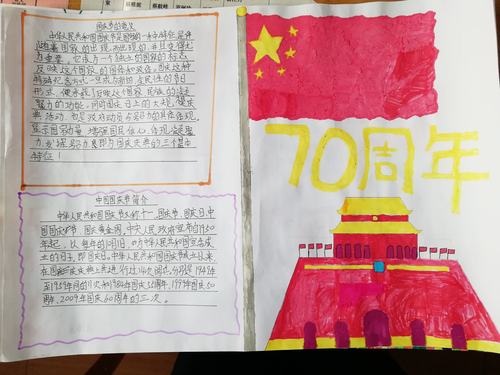 国庆节的意义
中华人民共和国国庆节是国家的一种特征是伴
随着国家的出现而出现的,并且变得尤
为重要。它成为一个独立的国家的标志,
反映这个国家的国体和政体。国庆这种
特殊纪念方式一旦成为新的全民性的节日
形式,便承载了反映这个国家民族的凝
聚力的功能。同时国庆日上的大规模庆
典活动,也是政府动员与号召力的具体体现。
显示国家力量、增强国民信心,体现凝聚
力,发挥号召力,即为国庆庆典的三个基本
特征!
中国国庆节简介
中华人民共和国国庆节又称十一、国庆节、国庆日、中
国国庆节、国庆黄金周。中央人民政府宣布自1950
年起,以每年的10月1日,即为中华人民共和国宣告成
立的日子,即国庆日。中华人民共和国国庆节成立以来,
在国庆庆典上共进行过14次阅兵。分别是1949年
至1959年间的11次和1984年国庆35周年、1999年国庆50
周年、2009年国庆60周年的三次。
70周年